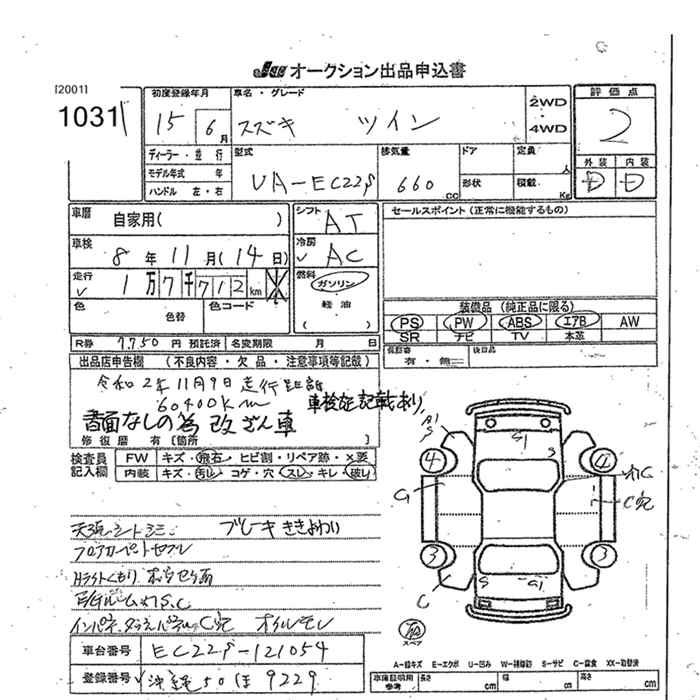 JU オークション出品申込書
[2001]
1031
初度登録年月
15 6月
車名・グレード
スズキ ツイン
2WD
4WD
評価点
2
ディーラー・並行
モデル年式 年
ハンドル 左・右
型式
UA-EC22S
排気量
660 cc
ドア
形状
定員 人
積載 Kg
外装 内装
D D
車歴
自家用( )
車検
8年11月(14日)
走行
1万7千712km
色 色替
色コード
シフト
AT
冷房
AC
燃料
ガソリン
軽油
( )
セールスポイント(正常に機能するもの)
装備品(純正品に限る)
PS PW ABS エアB AW
SR ナビ TV 本革
R券 7750円 預託済 名変期限 月 日
保証書
有・無
後日品
出品店申告欄(不良内容・欠品・注意事項等記載)
令和2年11月9日走行距離
60400km 車検証記載あり
書面なしの為 改ざん車
修復歴 有[箇所 ]
検査員
記入欄
FW キズ・飛石・ヒビ割・リペア跡・×要
内装 キズ・汚し・コゲ・穴・スレ・キレ・破し
天張シートシミ ブレーキききよわり
フロアカーペット
Hライトくもり
C穴 オイルモレ
車台番号
EC22S-121054
登録番号
沖縄50ほ9229
A1
S
G1
S
4
4
G
C穴
3
3
S
G1
C
スペア
A-線キズ E-エクボ U-凹み W-補修跡 S-サビ C-腐食 XX-取替済
車庫証明用
参考
長さ cm
幅 cm
高さ cm